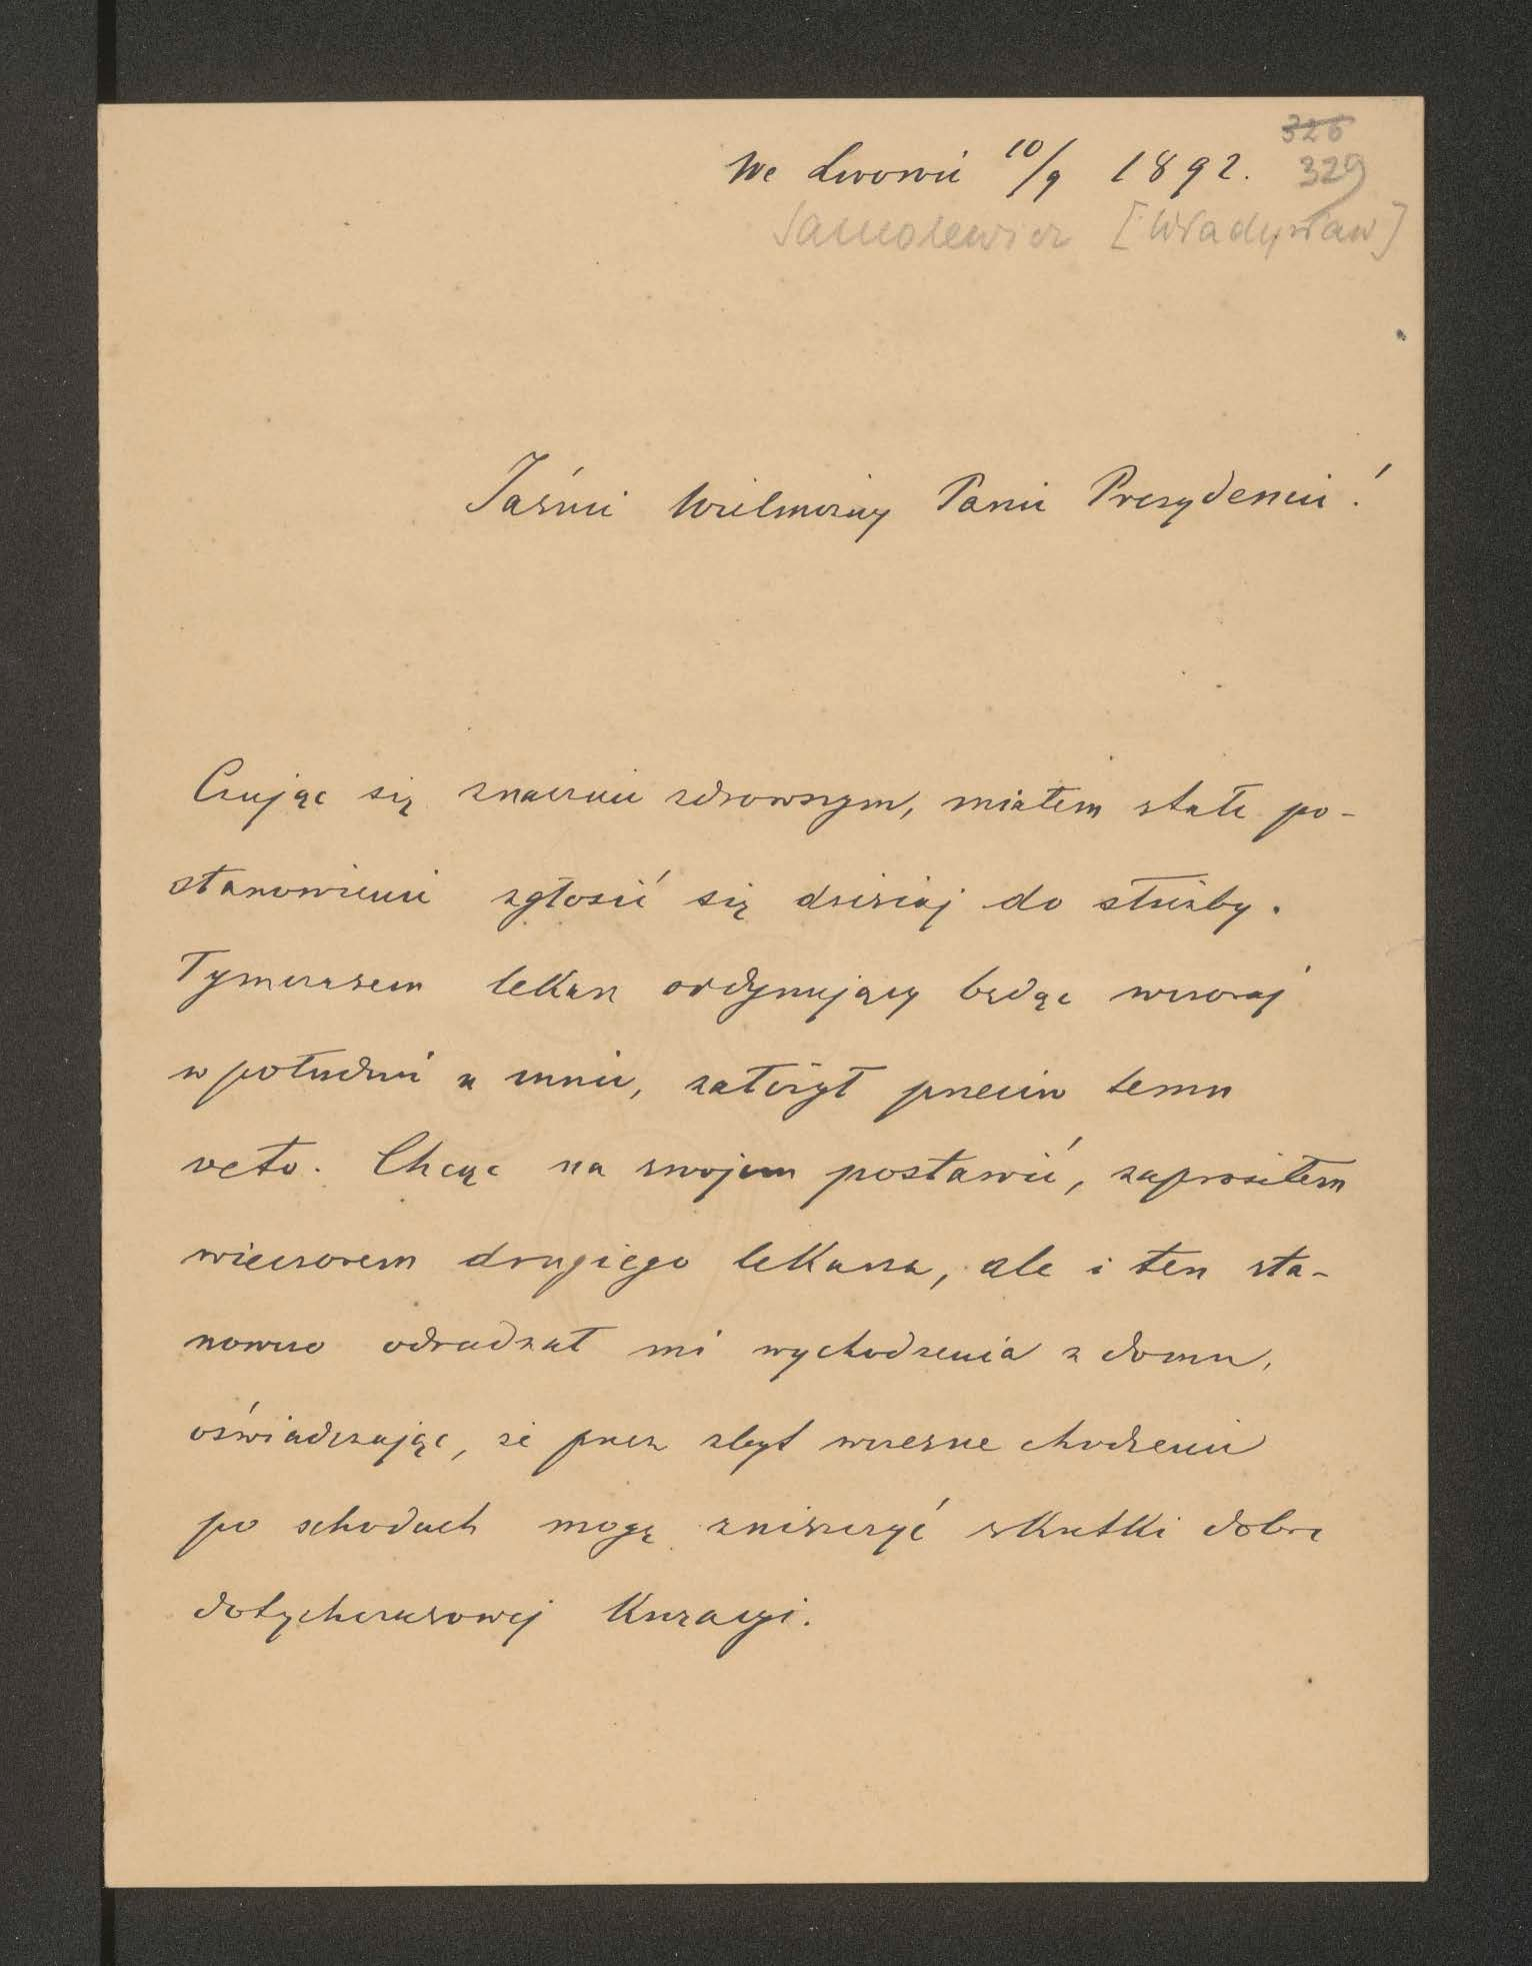 326
We Lwowie 10/9 1892. 329
Samolewicz [Władysław]
Jaśnie Wielmożny Panie Prezydencie!
Czując się znacznie zdrowszym, miałem stałe po-
stanowienie zgłosić się dzisiaj do służby.
Tymczasem lekarz ordynujący będąc wczoraj
w południe u mnie, założył przeciw temu
veto. Chcąc na swojem postawić, zaprosiłem
wieczorem drugiego lekarza, ale i ten sta-
nowczo odradzał mi wychodzenia z domu,
oświadczając, że przez zbyt wczesne chodzenie
po schodach mogę zniszczyć skutki dobre
dotychczasowej kuracyi.